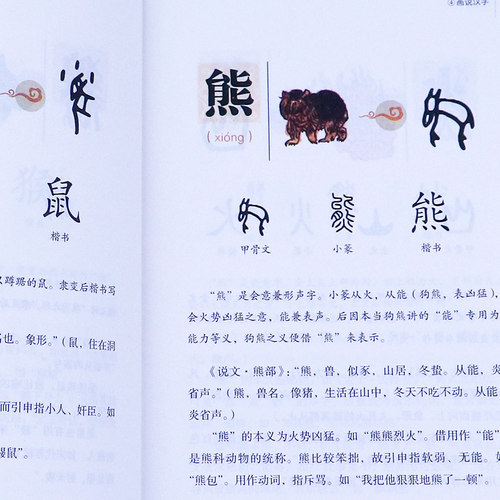 鼠
楷书
蹲踞的鼠。隶变后楷书写
也。象形。”(鼠，住在洞
而引申指小人、奸臣。如
鼠”。
④画说汉字
熊
(xióng)
甲骨文
小篆
熊
楷书
“熊”是会意兼形声字。小篆从火，从能(狗熊，表凶猛)，
会火势凶猛之意，能兼表声。后因本当狗熊讲的“能”专用为
能力等义，狗熊之义便借“熊”来表示。
《说文·熊部》：“熊，兽，似豕，山居，冬蛰。从能，炎
省声。”(熊，兽名。像猪，生活在山中，冬天不吃不动。从能
炎省声。)
“熊”的本义为火势凶猛。如“熊熊烈火”。借用作“能”
是熊科动物的统称。熊比较笨拙，故引申指软弱、无能。如
“熊包”。用作动词，指斥骂。如“我把他狠狠地熊了一顿”。